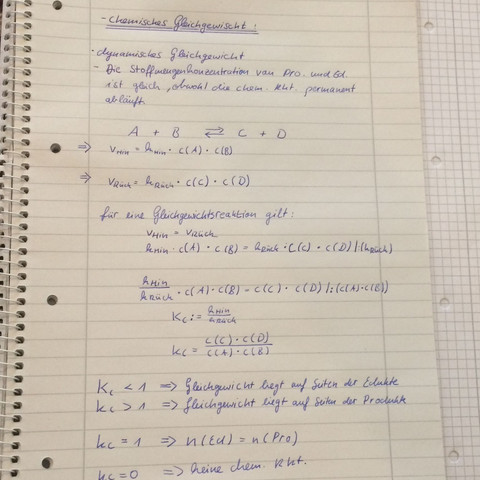 - Chemisches Gleichgewischt:
· dynamisches Gleichgewicht
- Die Stoffmengenkonzentration von Pro. und Ed.
ist gleich, obwohl die chem. Rkt. permanent
abläuft.
A + B ⇌ C + D
⇒ vHin = kHin · c(A) · c(B)
⇒ vRück = kRück · c(C) · c(D)
für eine Gleichgewichtsreaktion gilt:
vHin = vRück
kHin · c(A) · c(B) = kRück · c(C) · c(D) |:(kRück)
kHin/kRück · c(A) · c(B) = c(C) · c(D) |:(c(A)·c(B))
Kc := kHin/kRück
Kc = c(C) · c(D)/c(A) · c(B)
Kc < 1 => Gleichgewicht liegt auf Seiten der Edukte
Kc > 1 => Gleichgewicht liegt auf Seiten der Produkte
Kc = 1 => n(Ed) = n(Pro)
Kc = 0 => keine chem. Rkt.